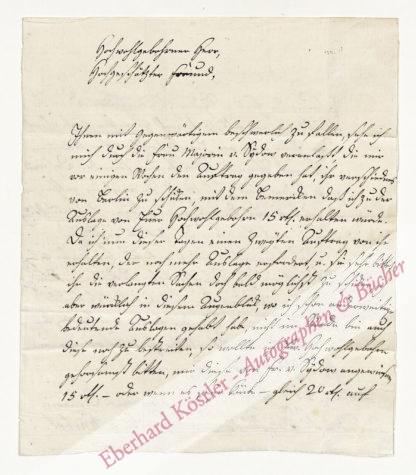 Hochwohlgebohrner Herr,
Hochgeschätzter Freund,
Ihnen mit Gegenwärtigem beschwerlich zu fallen, sehe ich
mich durch die Frau Majorin v. Sydow veranlaßt, die mir
vor einigen Wochen den Auftrag gegeben hat, ihr verschiedenes
von Berlin zu schicken, mit dem Bemerken daß ich zu der
Auslage von Euer Hochwohlgebohrn 15 rth. erhalten würde.
Da ich nun dieser Tagen einen zweyten Auftrag von ihr
erhalten, der noch mehr Auslage erfordert, u. sie sehr bittet
ihr die verlangten Sachen doch bald möglichst zu schicken, ich
aber würklich in diesem Augenblick, wo ich schon anderweitige
bedeutende Auslagen gehabt habe, nicht im Stande bin auch
diese noch zu bestreiten, so wollte Euer Hochwohlgebohrn
gehorsamst bitten, mir diese von Fr. v. Sydow angewiesenen
15 rth. – oder wenn es seyn könte – gleich 20 rth. auf
Eberhard Köstler - Autographen & Bücher